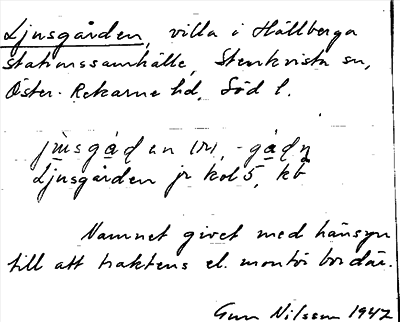 Ljusgården, villa i Hållberga
stationssamhälle, Stenkvista sn,
Öster-Rekarne hd, Söd l.
Ljusgården jr kol 5, kb
Namnet givet med hänsyn
till att traktens el. montör bor där.
Gun Nilsson 1942